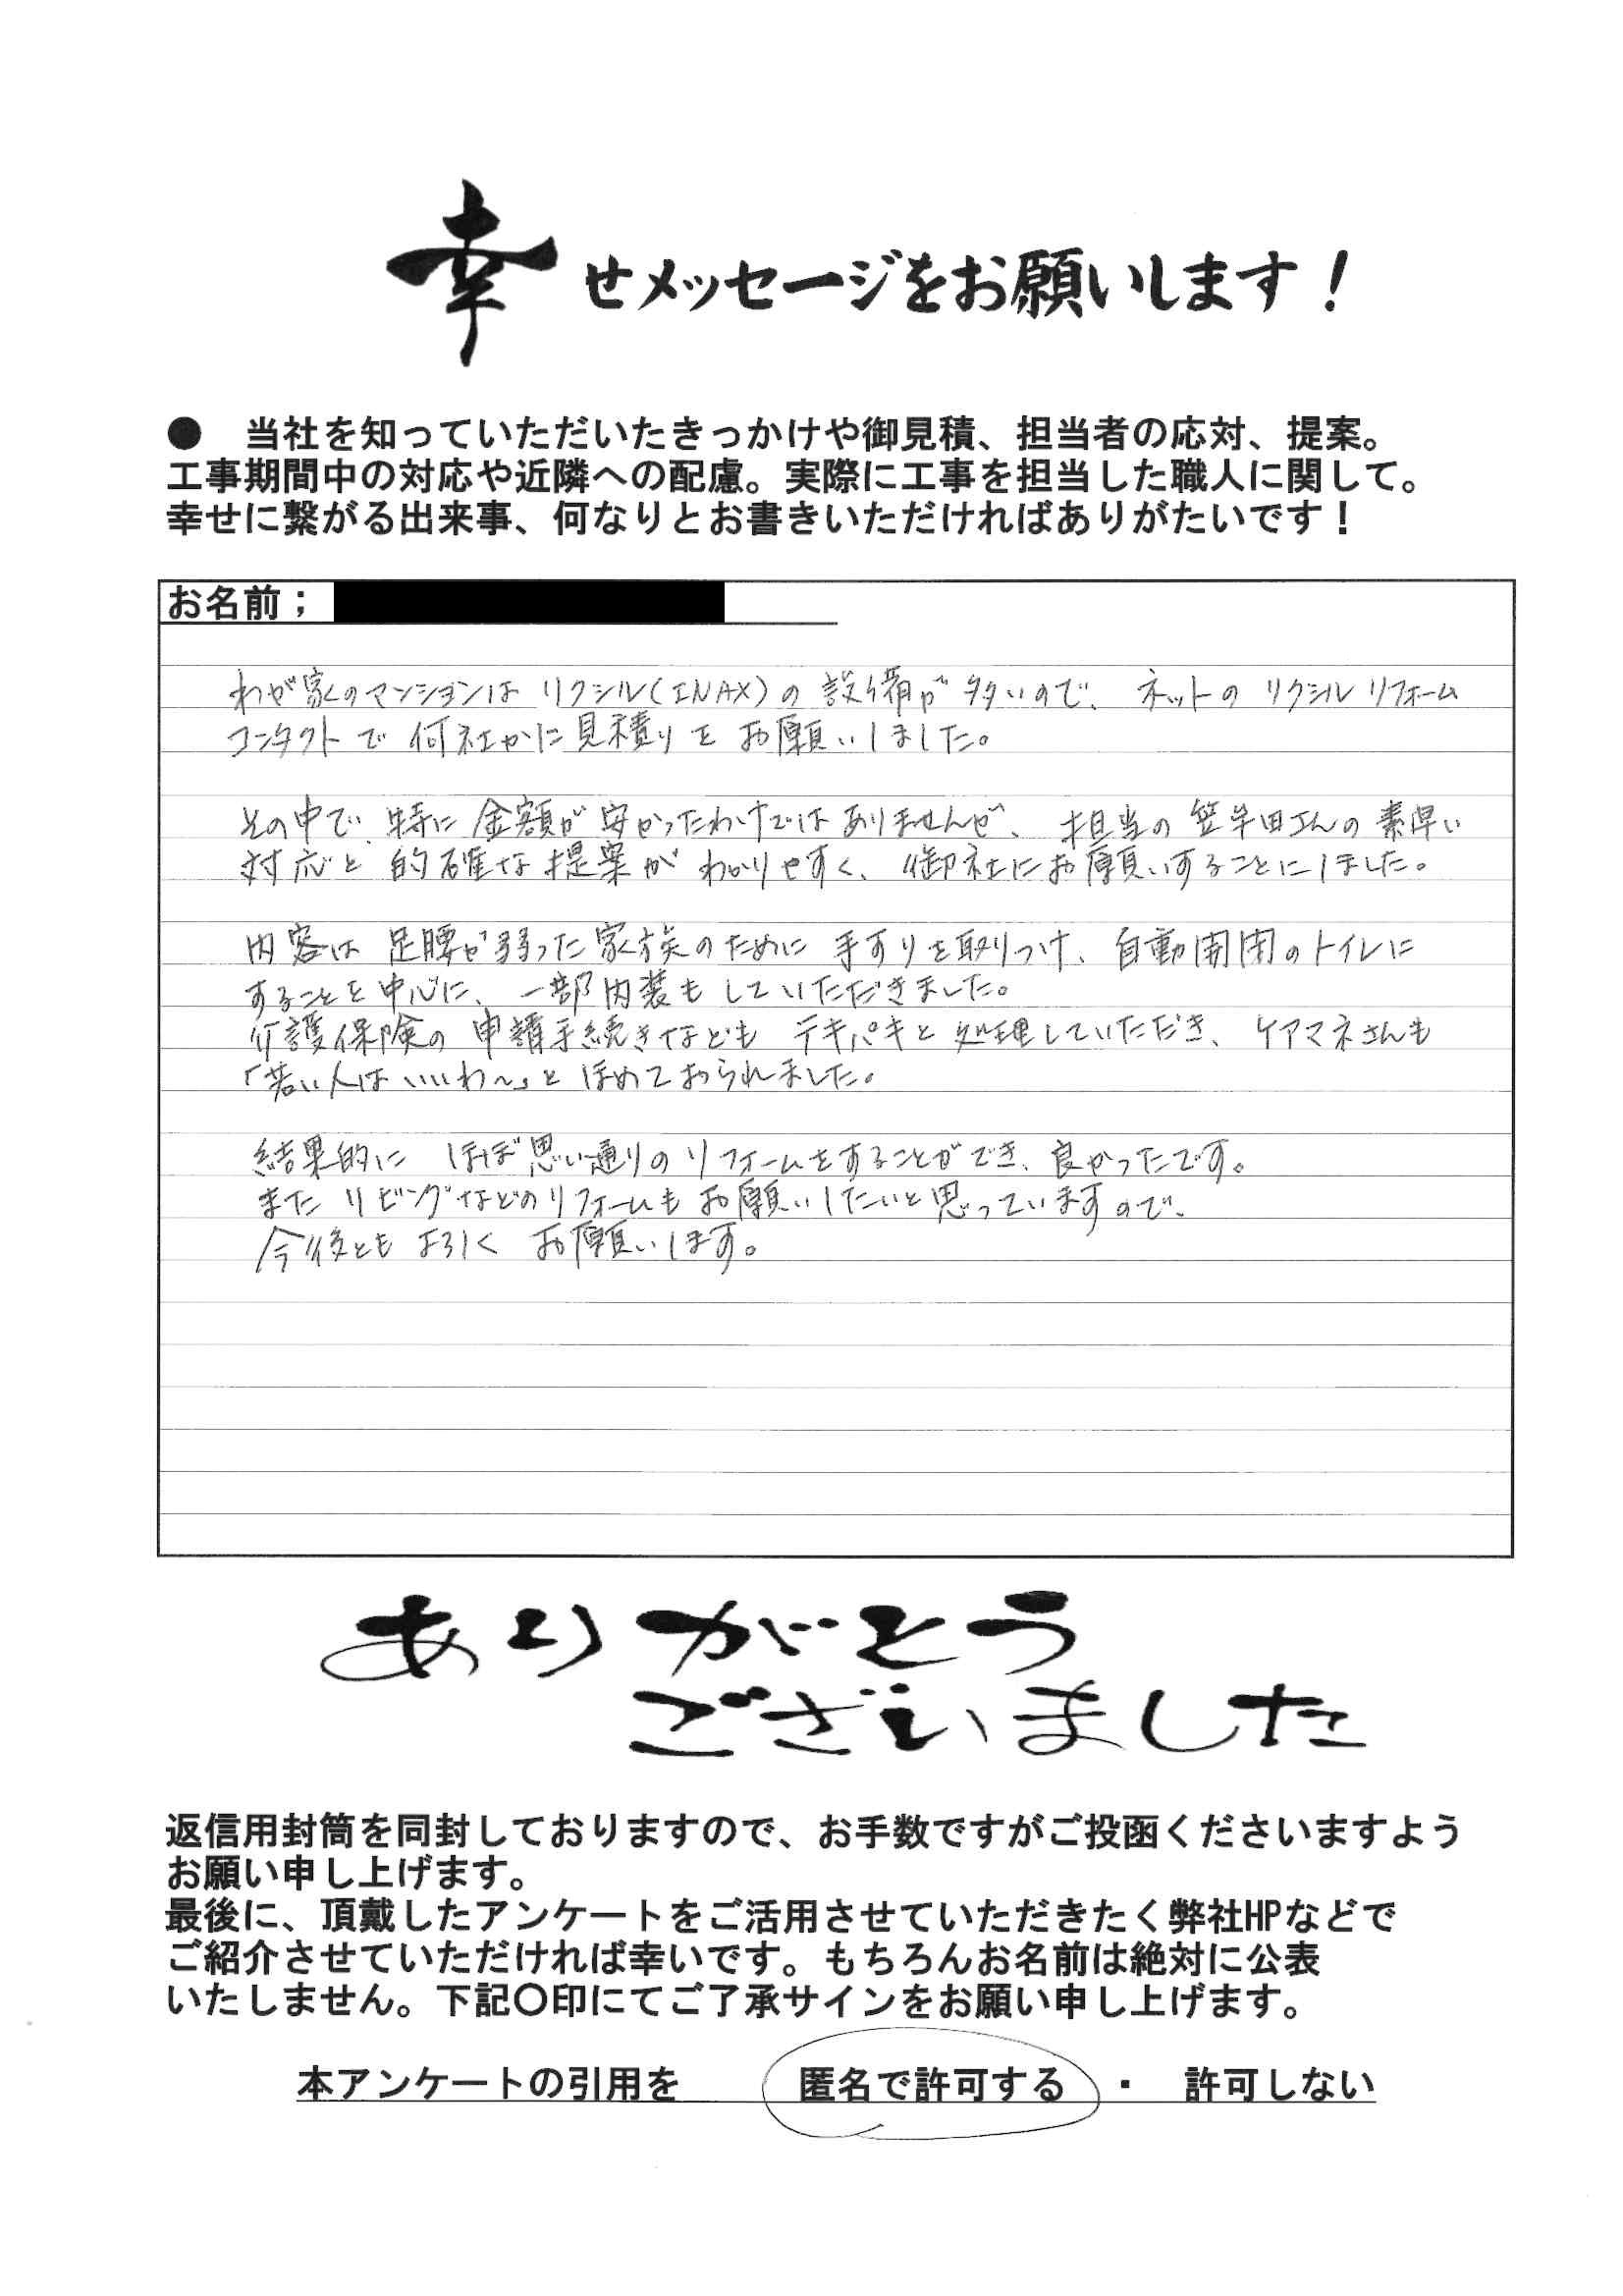 幸せメッセージをお願いします！
● 当社を知っていただいたきっかけや御見積、担当者の応対、提案。
工事期間中の対応や近隣への配慮。実際に工事を担当した職人に関して。
幸せに繋がる出来事、何なりとお書きいただければありがたいです！
お名前；
わが家のマンションは リクシル(INAX)の 設備が 多いので、 ネットの リクシル リフォーム
コンタクトで 何社かに 見積りを お願いしました。
その中で、特に 金額が 安かったわけではありませんが、 担当の 笠半田さんの 素早い
対応と 的確な 提案が わかりやすく、 御社にお願いすることにしました。
内容は 足腰が 弱った 家族のために 手すりを取りつけ、 自動開閉のトイレに
することを 中心に、 一部内装も していただきました。
介護保険の 申請手続きなども テキパキと 処理していただき、 ケアマネさんも
「若い人は いいわ〜」と ほめておられました。
結果的に ほぼ思い通りの リフォームをすることができ、 良かったです。
また リビングなどのリフォームも お願いしたいと思っていますので、
今後とも よろしく お願いします。
ありがとう
ございました
返信用封筒を同封しておりますので、お手数ですがご投函くださいますよう
お願い申し上げます。
最後に、頂戴したアンケートをご活用させていただきたく弊社HPなどで
ご紹介させていただければ幸いです。もちろんお名前は絶対に公表
いたしません。下記〇印にてご了承サインをお願い申し上げます。
本アンケートの引用を 匿名で許可する ・ 許可しない